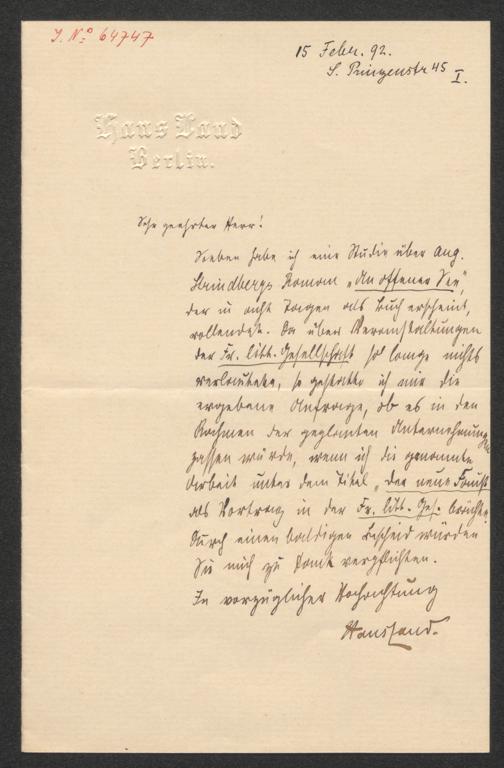 J. No 64747
15 Febr. 92.
S. Prinzenstr 45 I.
Hans Land
Berlin.
Sehr geehrter Herr!
Soeben habe ich eine Studie über Aug.
Strindbergs Roman „An offener See",
der in acht Tagen als Buch erscheint,
vollendet. Da über Veranstaltungen
der Fr. litt. Gesellschaft so lange nichts
verlautete, so gestatte ich mir die
ergebene Anfrage, ob es in den
Rahmen der geplanten Unternehmungen
passen würde, wenn ich die genannte
Arbeit unter dem Titel „Der neue Faust"
als Vortrag in der Fr. litt. Ges. brächte.
Durch einen baldigen Bescheid würden
Sie mich zu Dank verpflichten.
In vorzüglicher Hochachtung
Hans Land.